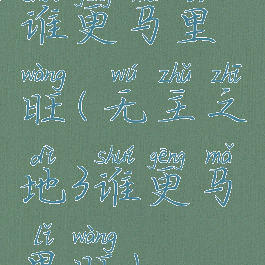 谁更马里
wàng wú zhǔ zhī
旺(无主之
dì shuí gèng mǎ
地)谁更马
lǐ wàng